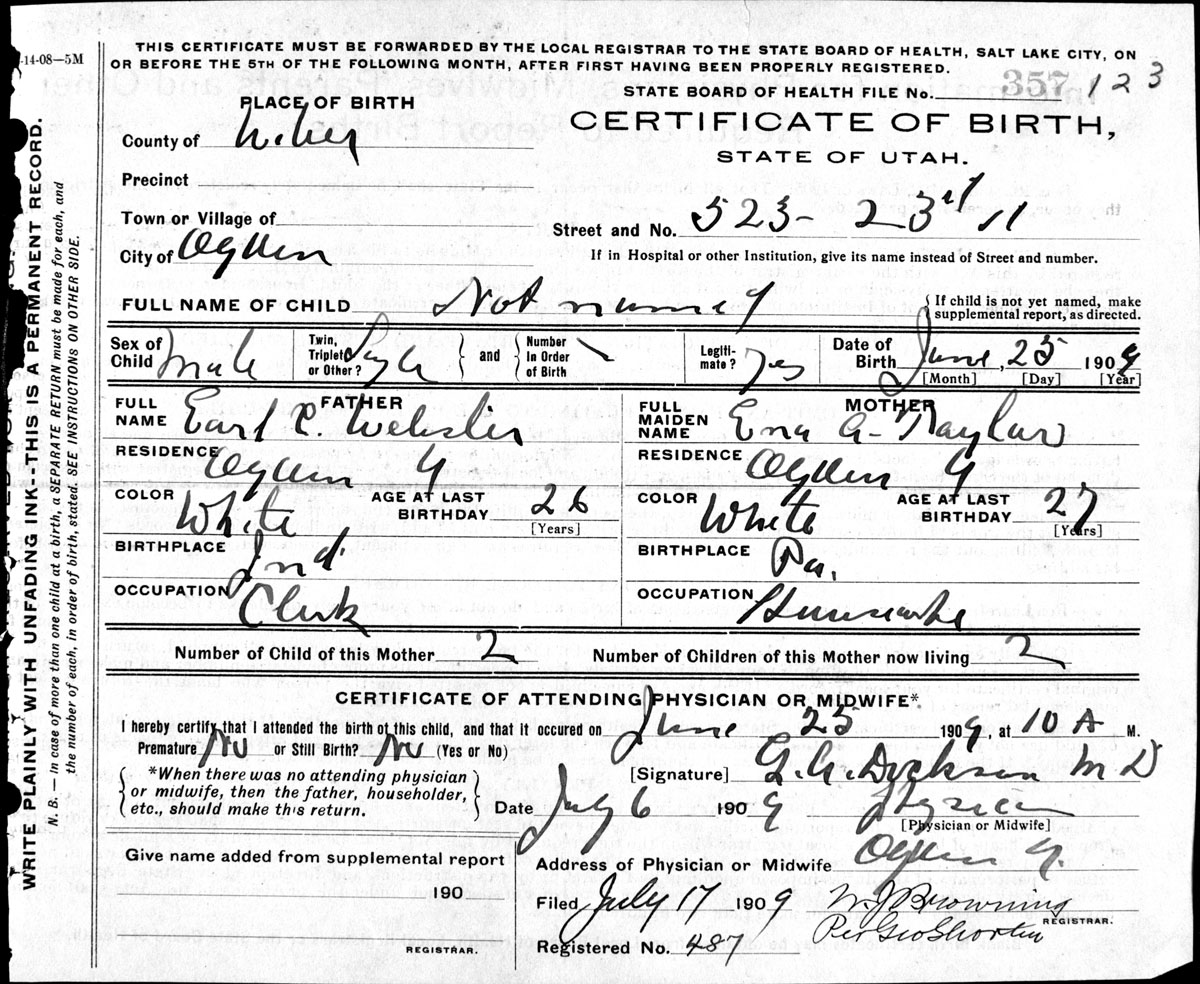 -14-08—5M
THIS CERTIFICATE MUST BE FORWARDED BY THE LOCAL REGISTRAR TO THE STATE BOARD OF HEALTH, SALT LAKE CITY, ON
OR BEFORE THE 5TH OF THE FOLLOWING MONTH, AFTER FIRST HAVING BEEN PROPERLY REGISTERED.
STATE BOARD OF HEALTH FILE No. 357 123
PLACE OF BIRTH
CERTIFICATE OF BIRTH,
STATE OF UTAH.
County of Weber
Precinct
Town or Village of
Street and No. 523- 23rd
City of Ogden
If in Hospital or other Institution, give its name instead of Street and number.
FULL NAME OF CHILD Not named
{ If child is not yet named, make
supplemental report, as directed.
Sex of Child Male
Twin, Triplet or Other? Single
and
Number in Order of Birth
Legiti-mate? Yes
Date of Birth June, 25 1909
[Month] [Day] [Year]
FATHER
FULL NAME Earl C. Webster
RESIDENCE Ogden U
COLOR White
AGE AT LAST BIRTHDAY 26 [Years]
BIRTHPLACE Ind
OCCUPATION Clerk
MOTHER
FULL MAIDEN NAME Ena A. Naylor
RESIDENCE Ogden U
COLOR White
AGE AT LAST BIRTHDAY 27 [Years]
BIRTHPLACE Pa.
OCCUPATION Housewife
Number of Child of this Mother 2
Number of Children of this Mother now living 2
CERTIFICATE OF ATTENDING PHYSICIAN OR MIDWIFE*.
I hereby certify that I attended the birth of this child, and that it occured on June 25 1909, at 10 A. M.
Premature No or Still Birth? No (Yes or No)
{ *When there was no attending physician
or midwife, then the father, householder,
etc., should make this return. }
[Signature] Dickson M D
Date July 6 1909 Physician
[Physician or Midwife]
Give name added from supplemental report
190
REGISTRAR.
Address of Physician or Midwife Ogden U.
Filed July 17 1909 W. J Browning
REGISTRAR.
Per Geo Shorten
Registered No. 487
WRITE PLAINLY WITH UNFADING INK—THIS IS A PERMANENT RECORD.
N. B. — In case of more than one child at a birth, a SEPARATE RETURN must be made for each, and
the number of each, in order of birth, stated. SEE INSTRUCTIONS ON OTHER SIDE.